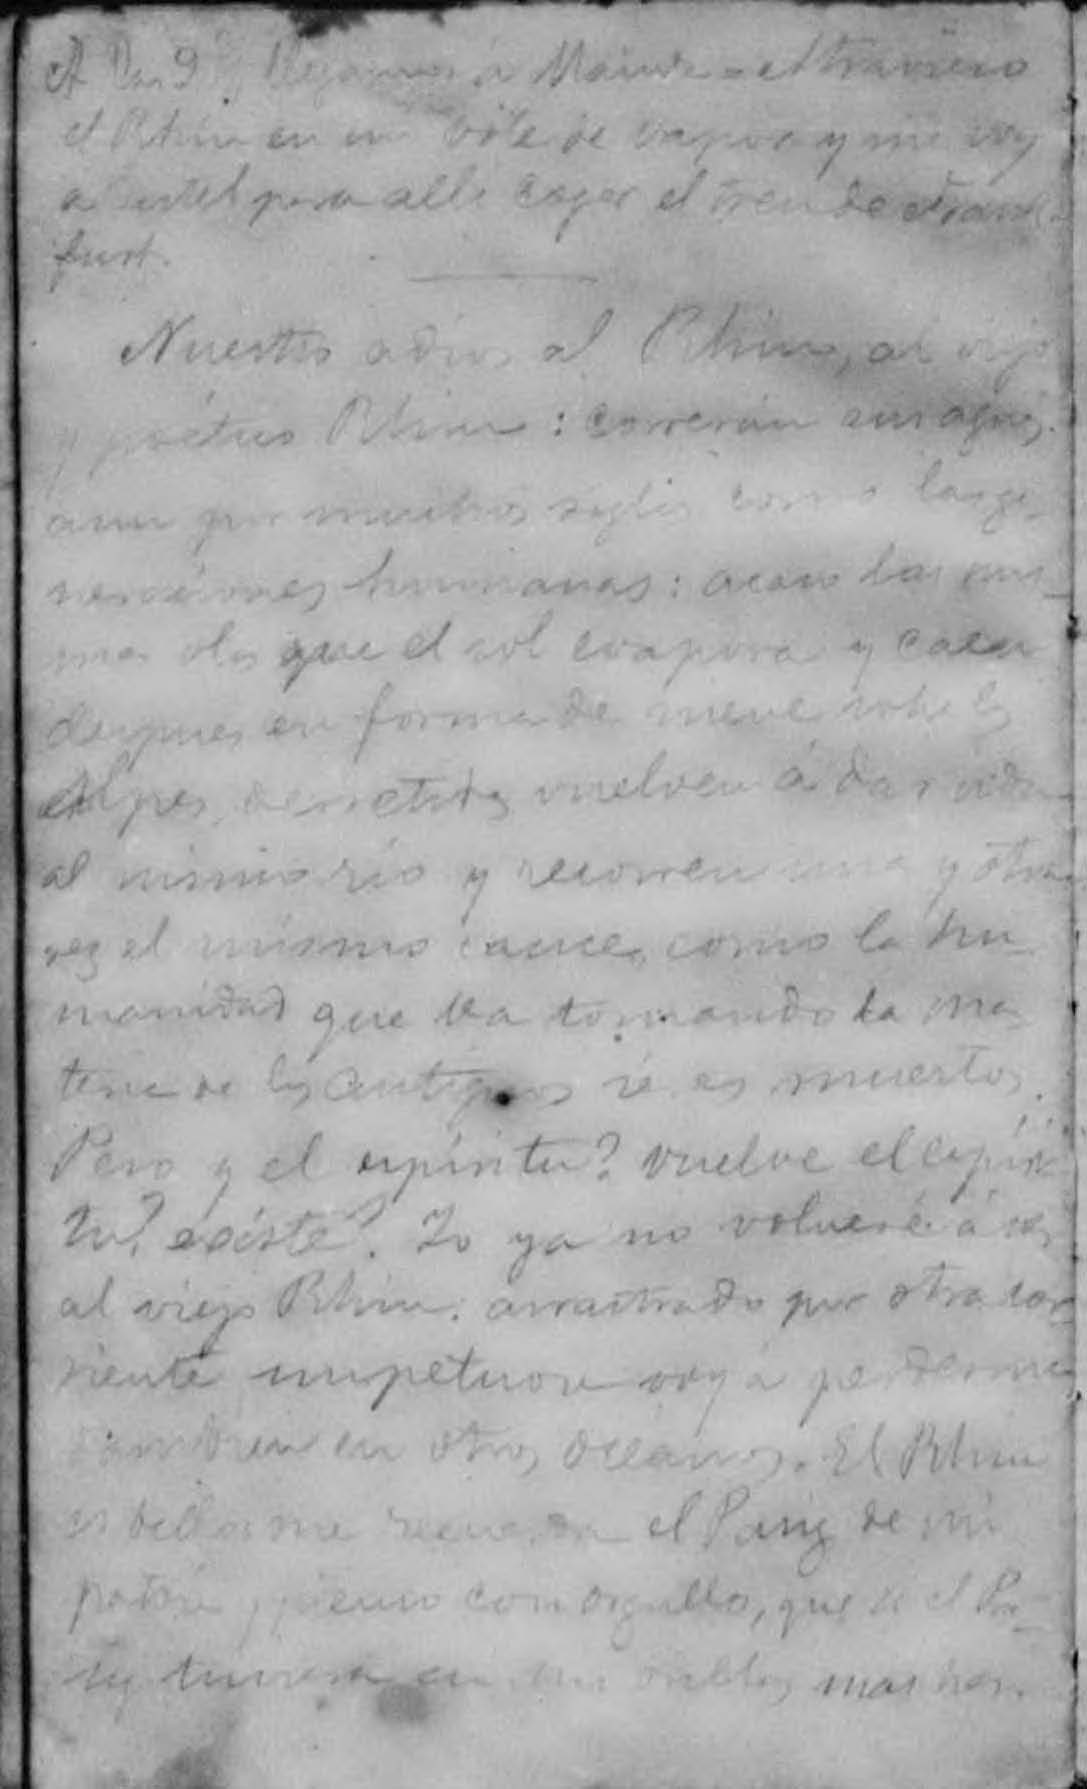 A las 9 llegamos á Mainz - Atravieso
el Rhin en un bote de vapor y me voy
a Castel para alli coger el tren de Frank
furt.
Nuestro adios al Rhin, al viejo
y poético Rhin: correrán sus aguas
aun por muchos siglos como las ge-
neraciones humanas: acaso las mis-
mas olas que el sol evapora y caen
despues en forma de nieve sobre los
Alpes, derretidas vuelven á dar vida
al mismo rio y recorren una y otra
vez el mismo cauce, como la hu-
manidad que va tomando la ma-
teria de los antiguos seres muertos.
Pero y el espíritu? vuelve el espíri
tu? existe? Yo ya no volveré á ver
al viejo Rhin: arrastrado por otra cor
riente impetuosa voy á perderme
tambien en otros océanos. El Rhin
es bello: me recuerda el Pasig de mi
patria, y pienso con orgullo, que si el Pa-
sig tuviera en sus orillas mas her